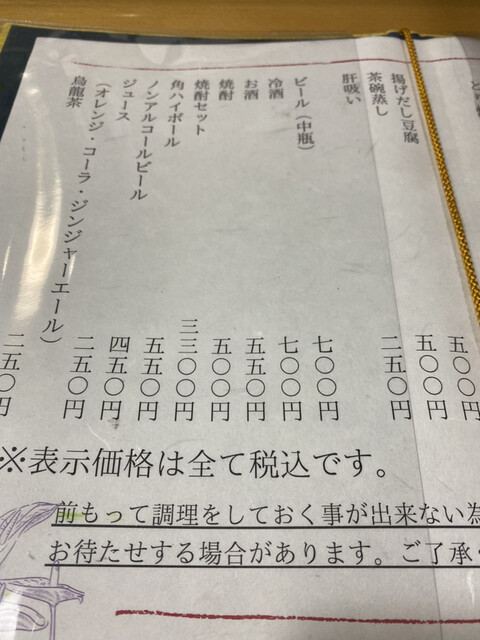 揚げだし豆腐 五〇〇円
茶碗蒸し 五〇〇円
肝吸い 二五〇円
ビール（中瓶） 七〇〇円
冷酒 七〇〇円
お酒 五五〇円
焼酎 五〇〇円
焼酎セット 三三〇〇円
角ハイボール 五五〇円
ノンアルコールビール 四五〇円
ジュース 二五〇円
（オレンジ・コーラ・ジンジャーエール）
烏龍茶 二五〇円
※表示価格は全て税込です。
前もって調理をしておく事が出来ない為
お待たせする場合があります。ご了承く